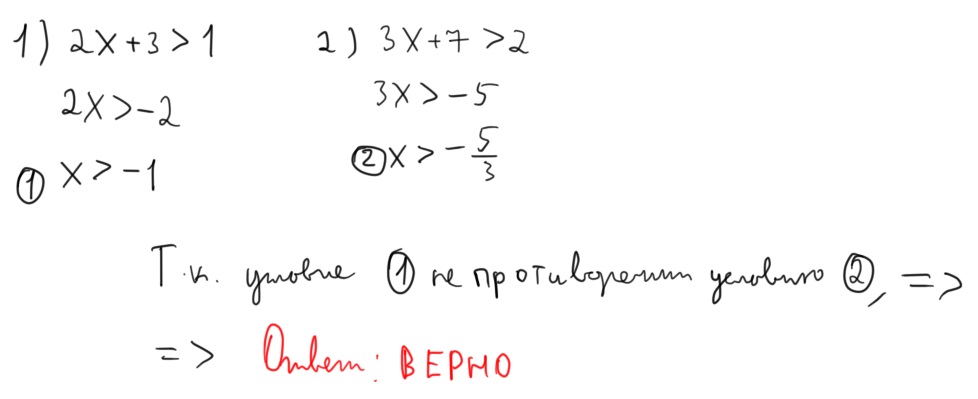 1) 2x+3>1 2) 3x+7>2
2x>-2 3x>-5
① x>-1 ② x>-5/3
Т.к. условие ① не противоречит условию ②, =>
=> Ответ: ВЕРНО